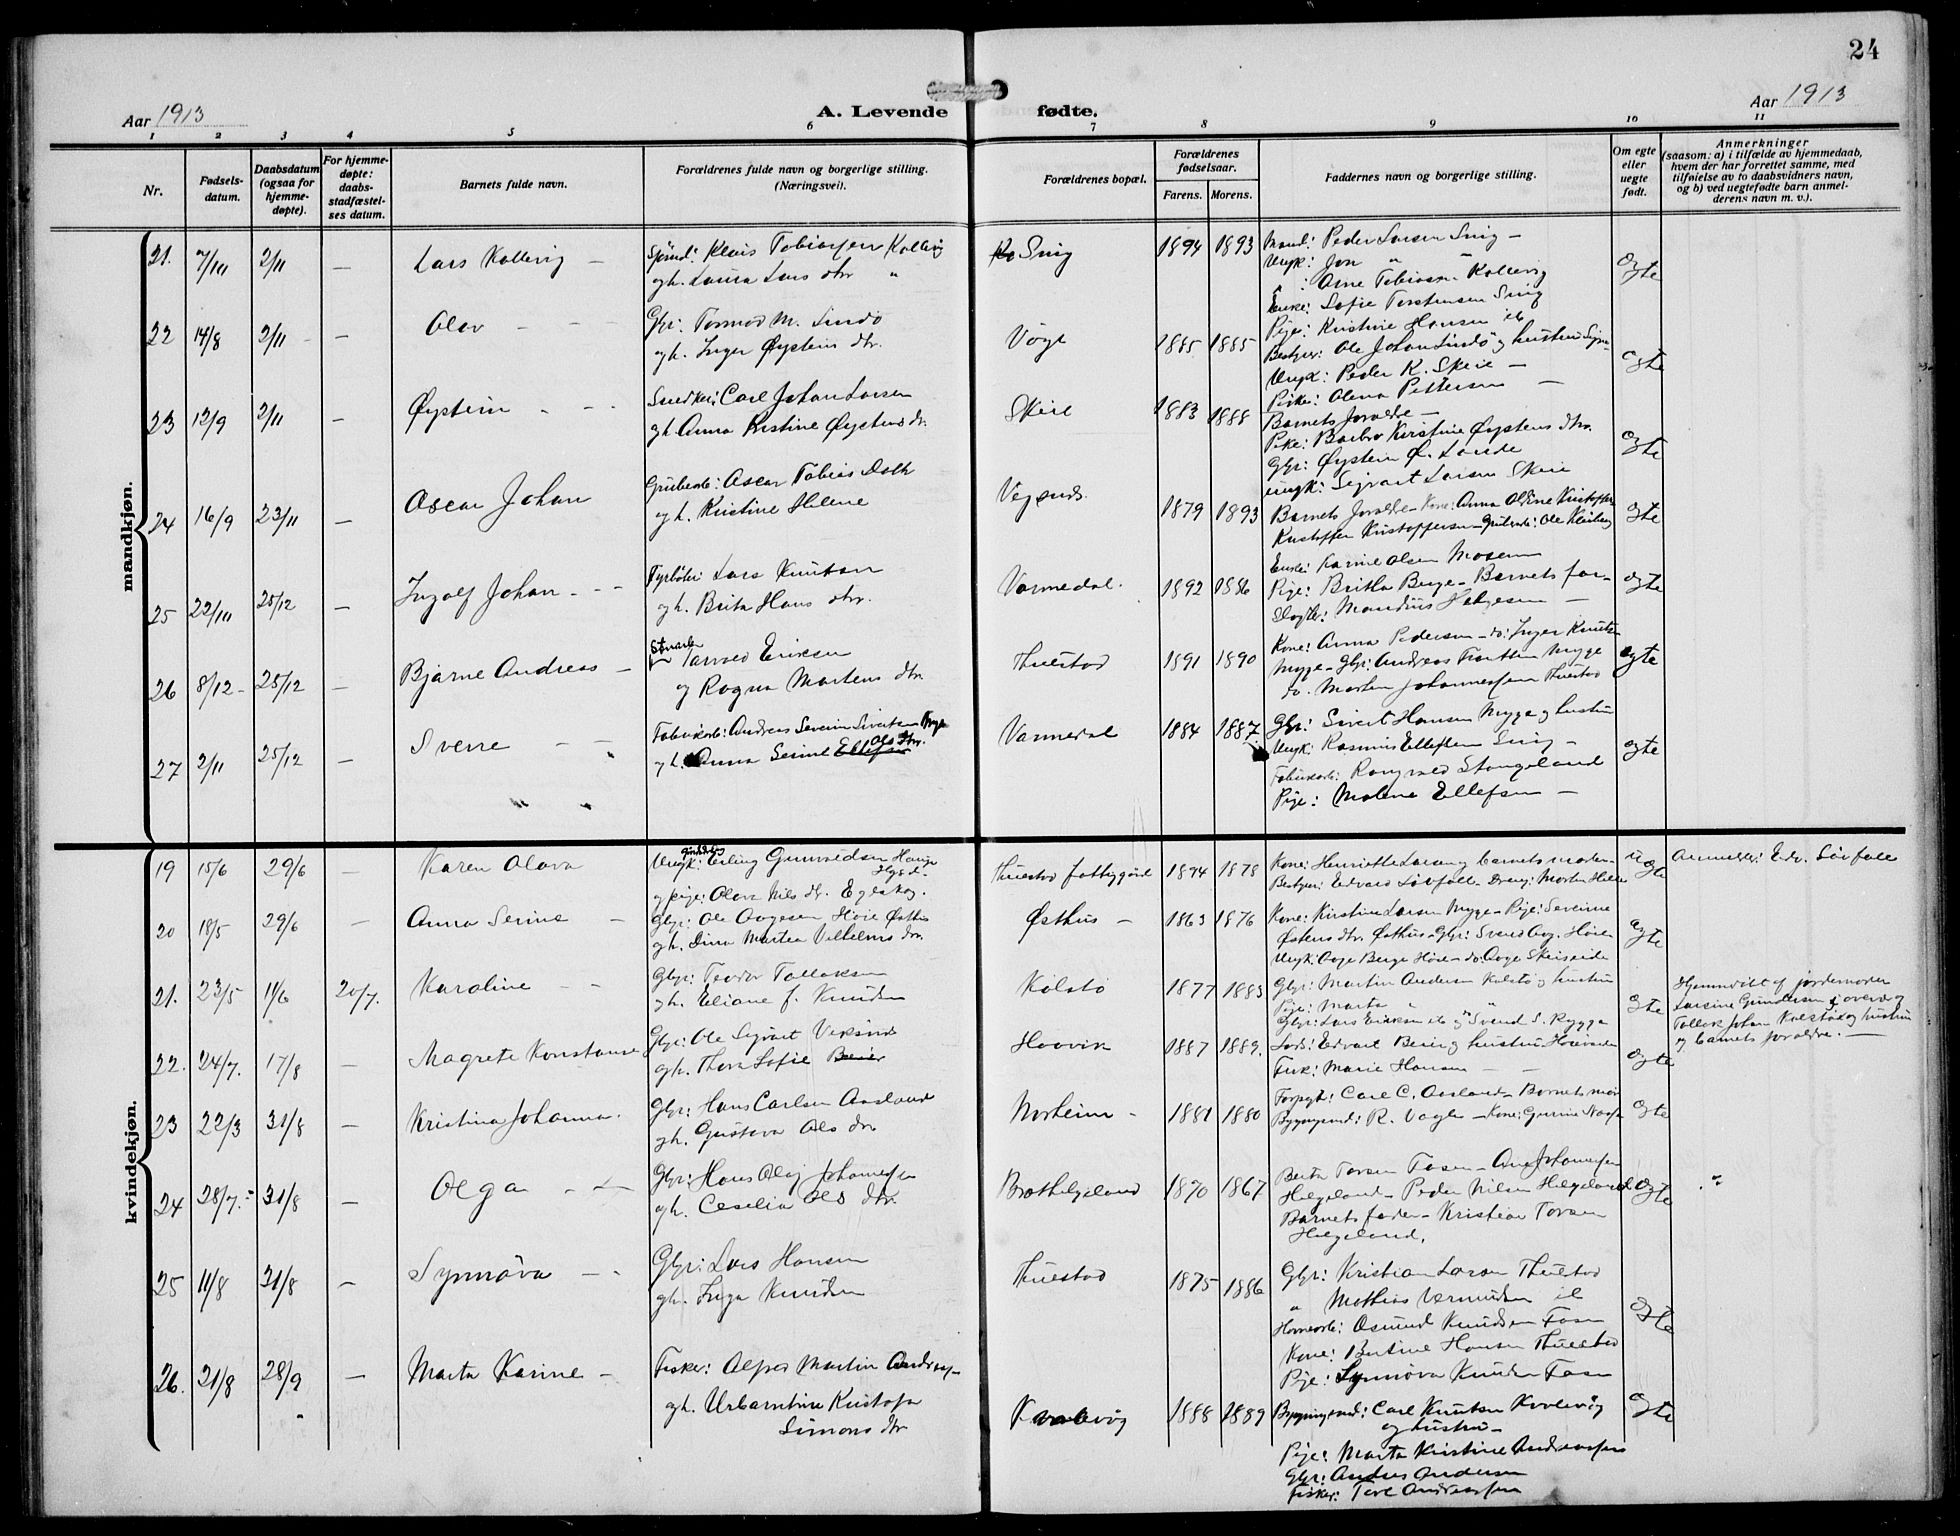 24
Aar 1913
A. Levende fødte.
Aar 1913
1 2 3 4 5 6 7 8 9 10 11
Nr.
Fødsels-
datum.
Daabsdatum
(ogsaa for
hjemme-
døpte).
For hjemme-
døpte:
daabs-
stadfæstel-
ses datum.
Barnets fulde navn.
Forældrenes fulde navn og borgerlige stilling.
(Næringsvei).
Forældrenes bopæl.
Forældrenes
fødselsaar.
Farens. Morens.
Faddernes navn og borgerlige stilling.
Om egte
eller
uegte
født.
Anmerkninger
(saasom: a) i tilfælde av hjemmedaab,
hvem der har forrettet samme, med
tilføielse av to daabsvidners navn,
og b) ved uegtefødte barn anmel-
derens navn m. v.).
mandkjøn.
21. 7/10 2/11 — Lars Kallevig —
Klaus Tobiassen Kallevig
gh. Laura Lars dtr "
Snig 1894 1893
Peder Larsen Snig —
Ungk: Jon "
Arne Tobiassen Kallevig
Enke: Sofie Torstensen Snig
Pige: Kristine Hansen
egte
22 14/8 2/11 — Olav — —
Gbr: Tormod M. Lindø
gh. Inger Øysteins dtr.
1885 1885
Bestyrer: Ole Johan Lindø og hustru
Ungk: Peder K. Skeie —
Pike: Olena Pettersen —
egte
23 12/9 2/11 — Øystein — —
Snedker: Carl Johan Larsen
gh. Anna Kristine Øysteins dtr.
Skeie 1883 1888
Barnets forældre —
Pike: Barbro Kirstine Øysteins dtr.
Gbr: Øystein Ø. Lande
Ungk: Sigvart Larsen Skeie
egte
24 16/9 23/11 — Oscar Johan
Grubearb: Oscar Tobias Dalk
gh. Kristine Helene
1879 1893
Barnets forældre — Kone: Anna Oline Kristoffer
Kristoffer Kristoffersen — Grubearb: Ole
egte
25 22/10 25/12 — Ingolf Johan — —
Fyrbøter: Lars Knutsen
gh. Brita Hans dtr.
Varmedal. 1892 1886
Enke: Karine Olsen Mosenn
Pige: Britha Berge — Barnets far —
Slagter: Mandius Helgesen —
egte
26 8/12 — 25/12 — Bjarne Andreas —
Tarald Eriksen
og Ragna Martens dtr.
Thuestad 1891 1890
Kone: Anna Pedersen — do: Inger Knuts
Myge — Gbr: Andreas Myge
do. Morten Johannessen Thuestad
egte
27 2/11 25/12 — Sverre — —
Fabrikarb: Andreas Severin Sivertsen Myge
gh. Anna Serine Ellefsen Ols dtr.
Varmedal 1884 1887.
Gbr: Sivert Hansen Myge og hustru
Ungk: Rasmus Ellefsen Snig —
Fabrikarb: Rangvald Stangeland
Pige: Malene Ellefsen —
egte
kvindekjøn.
19 15/6 29/6 — Karen Olava
Ungk: Erling Gunvaldsen Hauge
og pige: Olava Nils dtr. Eglskog.
Thuestad fattiggård 1874 1878
Kone: Henriette Larsen og barnets moder —
Bestyrer: Edvard Løvfall — Dreng: Morten
uegte
Anmelder: Edv. Løvfall
20 18/5 29/6 — Anna Serine —
Gbr: Ole Aagesen Høie Østhus
gh. Dina Martea Vilhelms dtr.
Østhus — 1863 1876
Kone: Kirstine Larsen Myge — Pige: Severine
Østens dtr. Østhus — Gbr: Svend Aag. Høie
Ungk: Aage Berge Høie — do: Aage Skeiseide
egte
21. 23/5 1/6 20/7. Karoline — —
Gbr: Teodor Tallaksen
gh. Eliane J. Knudsen
Kolstø 1877 1883
Gbr: Martin Andersen Kolstø og hustru
Pige: Marta " "
Gbr: Lars Eriksen ib og Svend S. Rygge
egte
Hjemmedøbt af jordemoder
Larsine Gundersen i overv. af
Tallak Johan Kolstø og hustru
og barnets forældre. —
22. 24/7. 17/8 — Magrete Konstanse
Gbr: Ole Sigvart Viksund
gh. Thora Sofie Beier
Haavik 1887 1889.
Edvart Beier og hustru Haavik
Frk: Marie Hansen — —
egte
23 22/3 31/8 — Kristina Johanna.
Gbr: Hans Carlsen Aasland
gh. Gustava Ols dtr
Norheim — 1881 1880
Forpagt: Carl C. Aasland — Barnets mor
Bygningssnd: R. Vagle — Kone: Gurine
egte
24 28/7. 31/8 — Olga — —
Gbr: Hans Olaj Johannesen
gh. Cecelia Ols dtr.
Brothelgeland 1870 1867
Berta Torsen Fosen — Ane Johannesen
Helgeland — Peder Nilsen Helgeland
Barnets fader — Kristian Torsen
Helgeland.
egte "
25 11/8 31/8 — Synnøva — —
Gbr: Lars Hansen
gh. Inga Knudsen
Thuestad 1875 1886
Gbr: Kristian Larsen Thuestad
" Mathias Værmundsen ib
Havnearb: Osmund Knudsen Fosen
Kone: Bertine Hansen Thuestad
Pige: Synnøva Knudsen Fosen
egte
26. 21/8 28/9 — Marta Karine —
Fisker: Alfred Martin Andreas-
gh. Urbantine Kristofa
Simons dtr
Kvalevåg 1888 1889
Bygningssnd: Carl Knutsen Kvalevåg
og hustru —
Pige: Marta Kristine Andreassen
Gbr: Andreas Andersen
Fisker: Tore Andreassen
egte